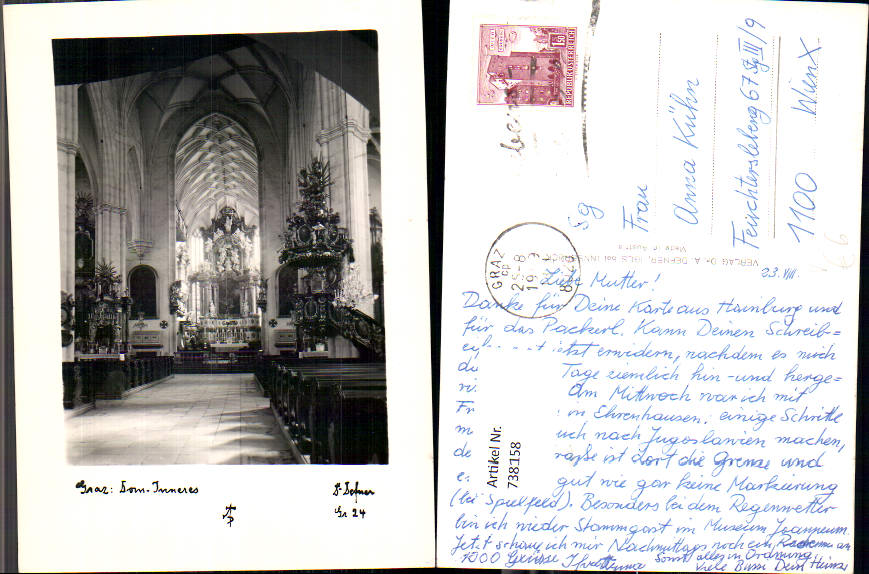 Graz: Dom-Inneres
Dr Defner
Gr 24
REPUBLIK ÖSTERREICH
1.50
GRAZ
25.-8
19
8020
Sg
Frau
Anna Kühn
Feuchterslebeng 67
III/9
1100 Wien X.
VERLAG Dr. A. DEFNER, IGLS bei INNSBRUCK
Made in Austria
23. VIII.
Liebe Mutter!
Danke für Deine Karte aus Hainburg und
für das Packerl. Kann Deinen Schreib=
jetzt erwidern, nachdem es mich
Tage ziemlich hin- und herge=
Am Mittwoch war ich mit
in Ehrenhausen: einige Schritte
nach Jugoslawien machen,
ist dort die Grenze und
gut wie gar keine Markierung
(bei Spielfeld). Besonders bei dem Regenwetter
bin ich wieder Stammgast im Museum Joanneum.
Jetzt schaue ich mir Nachmittags noch ein
an
1000 Grüsse
Sonst alles in Ordnung
viele Bussi Dein Heinz
Artikel Nr.
738158